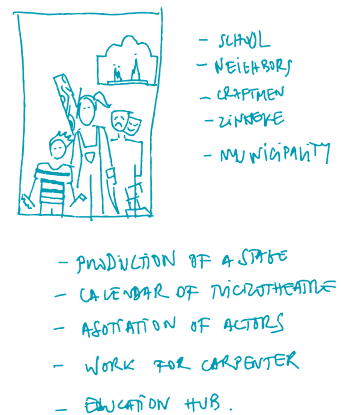 - SCHOOL
- NEIGHBORS
- CRAFTMEN
- ZINNEKE
- MUNICIPALITY
- PRODUCTION OF A STAGE
- CALENDAR OF MICROTHEATRE
- ASOTIATION OF ACTORS
- WORK FOR CARPENTER
- EDUCATION HUB.